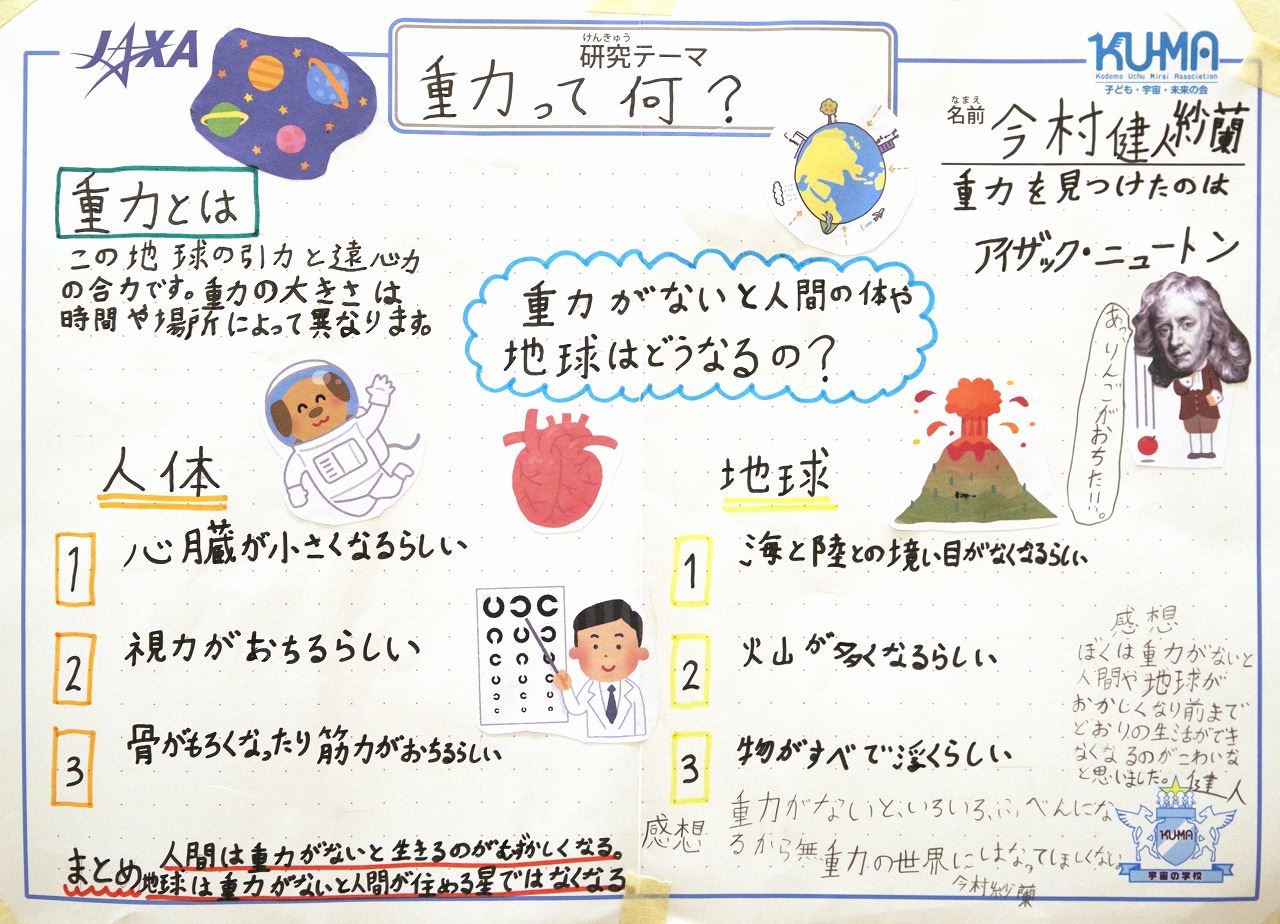 JAXA
けんきゅう
研究テーマ
重力って何?
KU-MA
Kodomo Uchu Mirai Association
子ども・宇宙・未来の会
なまえ
名前 今村健人紗蘭
重力とは
この地球の引力と遠心力
の合力です。重力の大きさは
時間や場所によって異なります。
重力を見つけたのは
アイザック・ニュートン
あっ、りんごがおちた!!!。
重力がないと人間の体や
地球はどうなるの?
人体
1 心臓が小さくなるらしい
2 視力がおちるらしい
3 骨がもろくなったり筋力がおちるらしい
地球
1 海と陸との境い目がなくなるらしい
2 火山が多くなるらしい
3 物がすべて浮くらしい
まとめ
人間は重力がないと生きるのがむずかしくなる。
地球は重力がないと人間が住める星ではなくなる
感想
重力がないと、いろいろ、ふべんにな
るから無重力の世界にはなってほしくない。
今村紗蘭
感想
ぼくは重力がないと
人間や地球が
おかしくなり前まで
どおりの生活ができ
なくなるのがこわいな
と思いました。健人
KU-MA
宇宙の学校